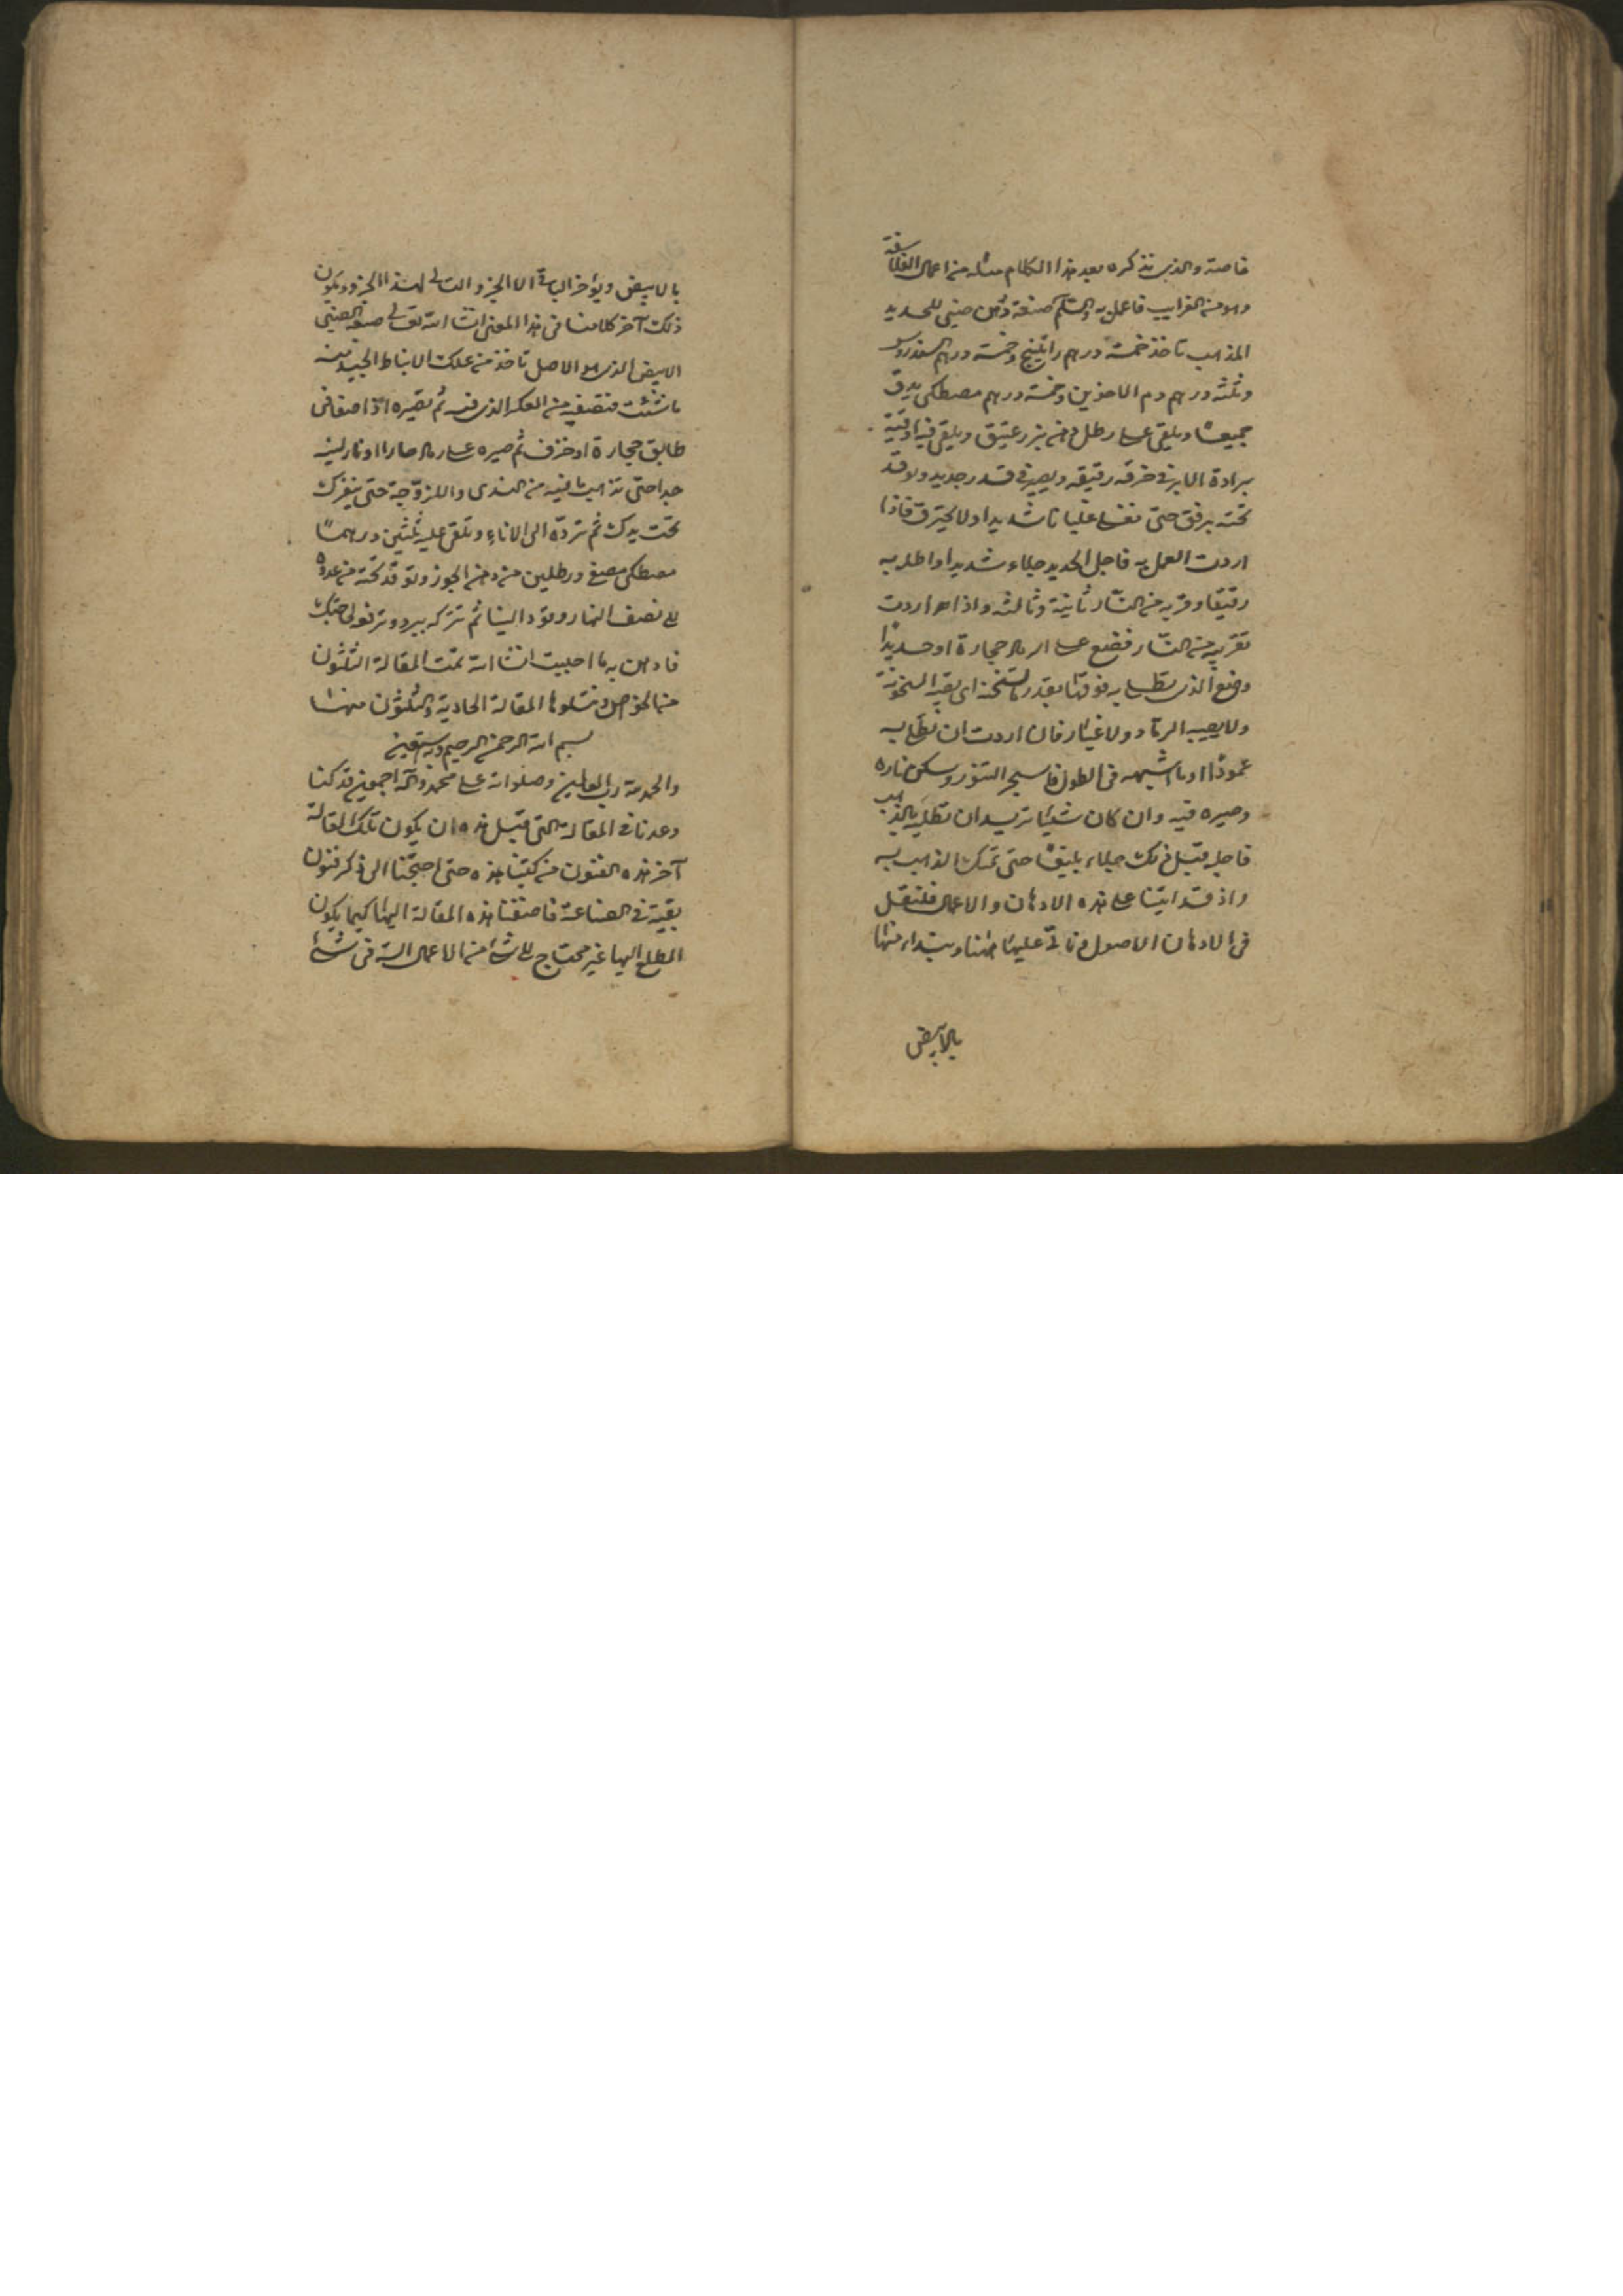 خاصة والذى نذكره بعد هذا الكلام مثله من اعمال الفلاسفة
وهو من الغرايب فاعمل به والسلم صنعة دهن صينى للحديد
المذهب تاخذ خمسة درهم راتينج وخمسة درهم السندروس
وثلثه درهم دم الاخوين وخمسة درهم مصطكى يدق
جميعا ويلقى على رطل دهن بزر عتيق ويلقى فيه اوقية
برادة الابر فى خرقه رقيقه ويصير فى قدر جديد ويوقد
تحته برفق حتى تغلى غليانا شديدا ولا يحترق فاذا
اردت العمل به فاجل الحديد جلاء شديدا واطله به
رقيقا وقربه من النار ثانية وثالثه واذا اردت
تقريبه من النار فضع على الرماد حجارة او حديدا
وضع الذى تطلى به فوقها بقدر ما تسخن اى يقيه السخونة
ولا يصيبه الرماد ولا غبار فان اردت ان تطلى به
عمودا او ما اشبهه فى الطول فاسجر التنور وسكن ناره
وصيره فيه وان كان شيئا تريد ان تطليه بالذهب
فاجله قبل ذلك جلاء بليغا حتى يمسك الذهب به
واذ قد اتينا على هذه الادهان والاعمال فلنقل
فى الادهان الاصول وناتى عليها ههنا ونبتداء منها
بالابيض
بالابيض ويؤخر الباقى الا الجزو التالى لهذا الجزو ويكون
ذلك آخر كلامنا فى هذا المعنى انشا الله تعالى صفة الصينى
الابيض الذى هو الاصل تاخذ من علك الانباط الجيد منه
ما شئت فتصفيه من العكر الذى فيه ثم تصيره اذا صفا فى
طابق حجارة او خزف ثم صيره على رماد حار او نار لينه
جدا حتى تذهب ما فيه من الندى واللزوجة حتى ينفرك
تحت يدك ثم ترده الى الاناء وتلقى عليه ثلثين درهما
مصطكى مصفى ورطلين من دهن الجوز وتوقد تحته من غدوة
الى نصف النهار وقودا لينا ثم تتركه يبرد وترفعه لحاجتك
فادهن به ما احببت انشا الله تمت المقالة الثلثون
من الخواص وتتلوها المقالة الحادية والثلثون منها
بسم الله الرحمن الرحيم وبه نستعين
والحمد لله رب العالمين وصلواته على محمد وآله اجمعين قد كنا
وعدنا فى المقالة التى قبل هذه ان يكون تلك المقالة
آخر هذه الفنون من كتبنا هذه حتى احتجنا الى ذكر فنون
بقية فى الصناعة فاضفنا هذه المقالة اليها كيما يكون
المطلع اليها غير محتاج الى شئ من الاعمال البته فى شئ